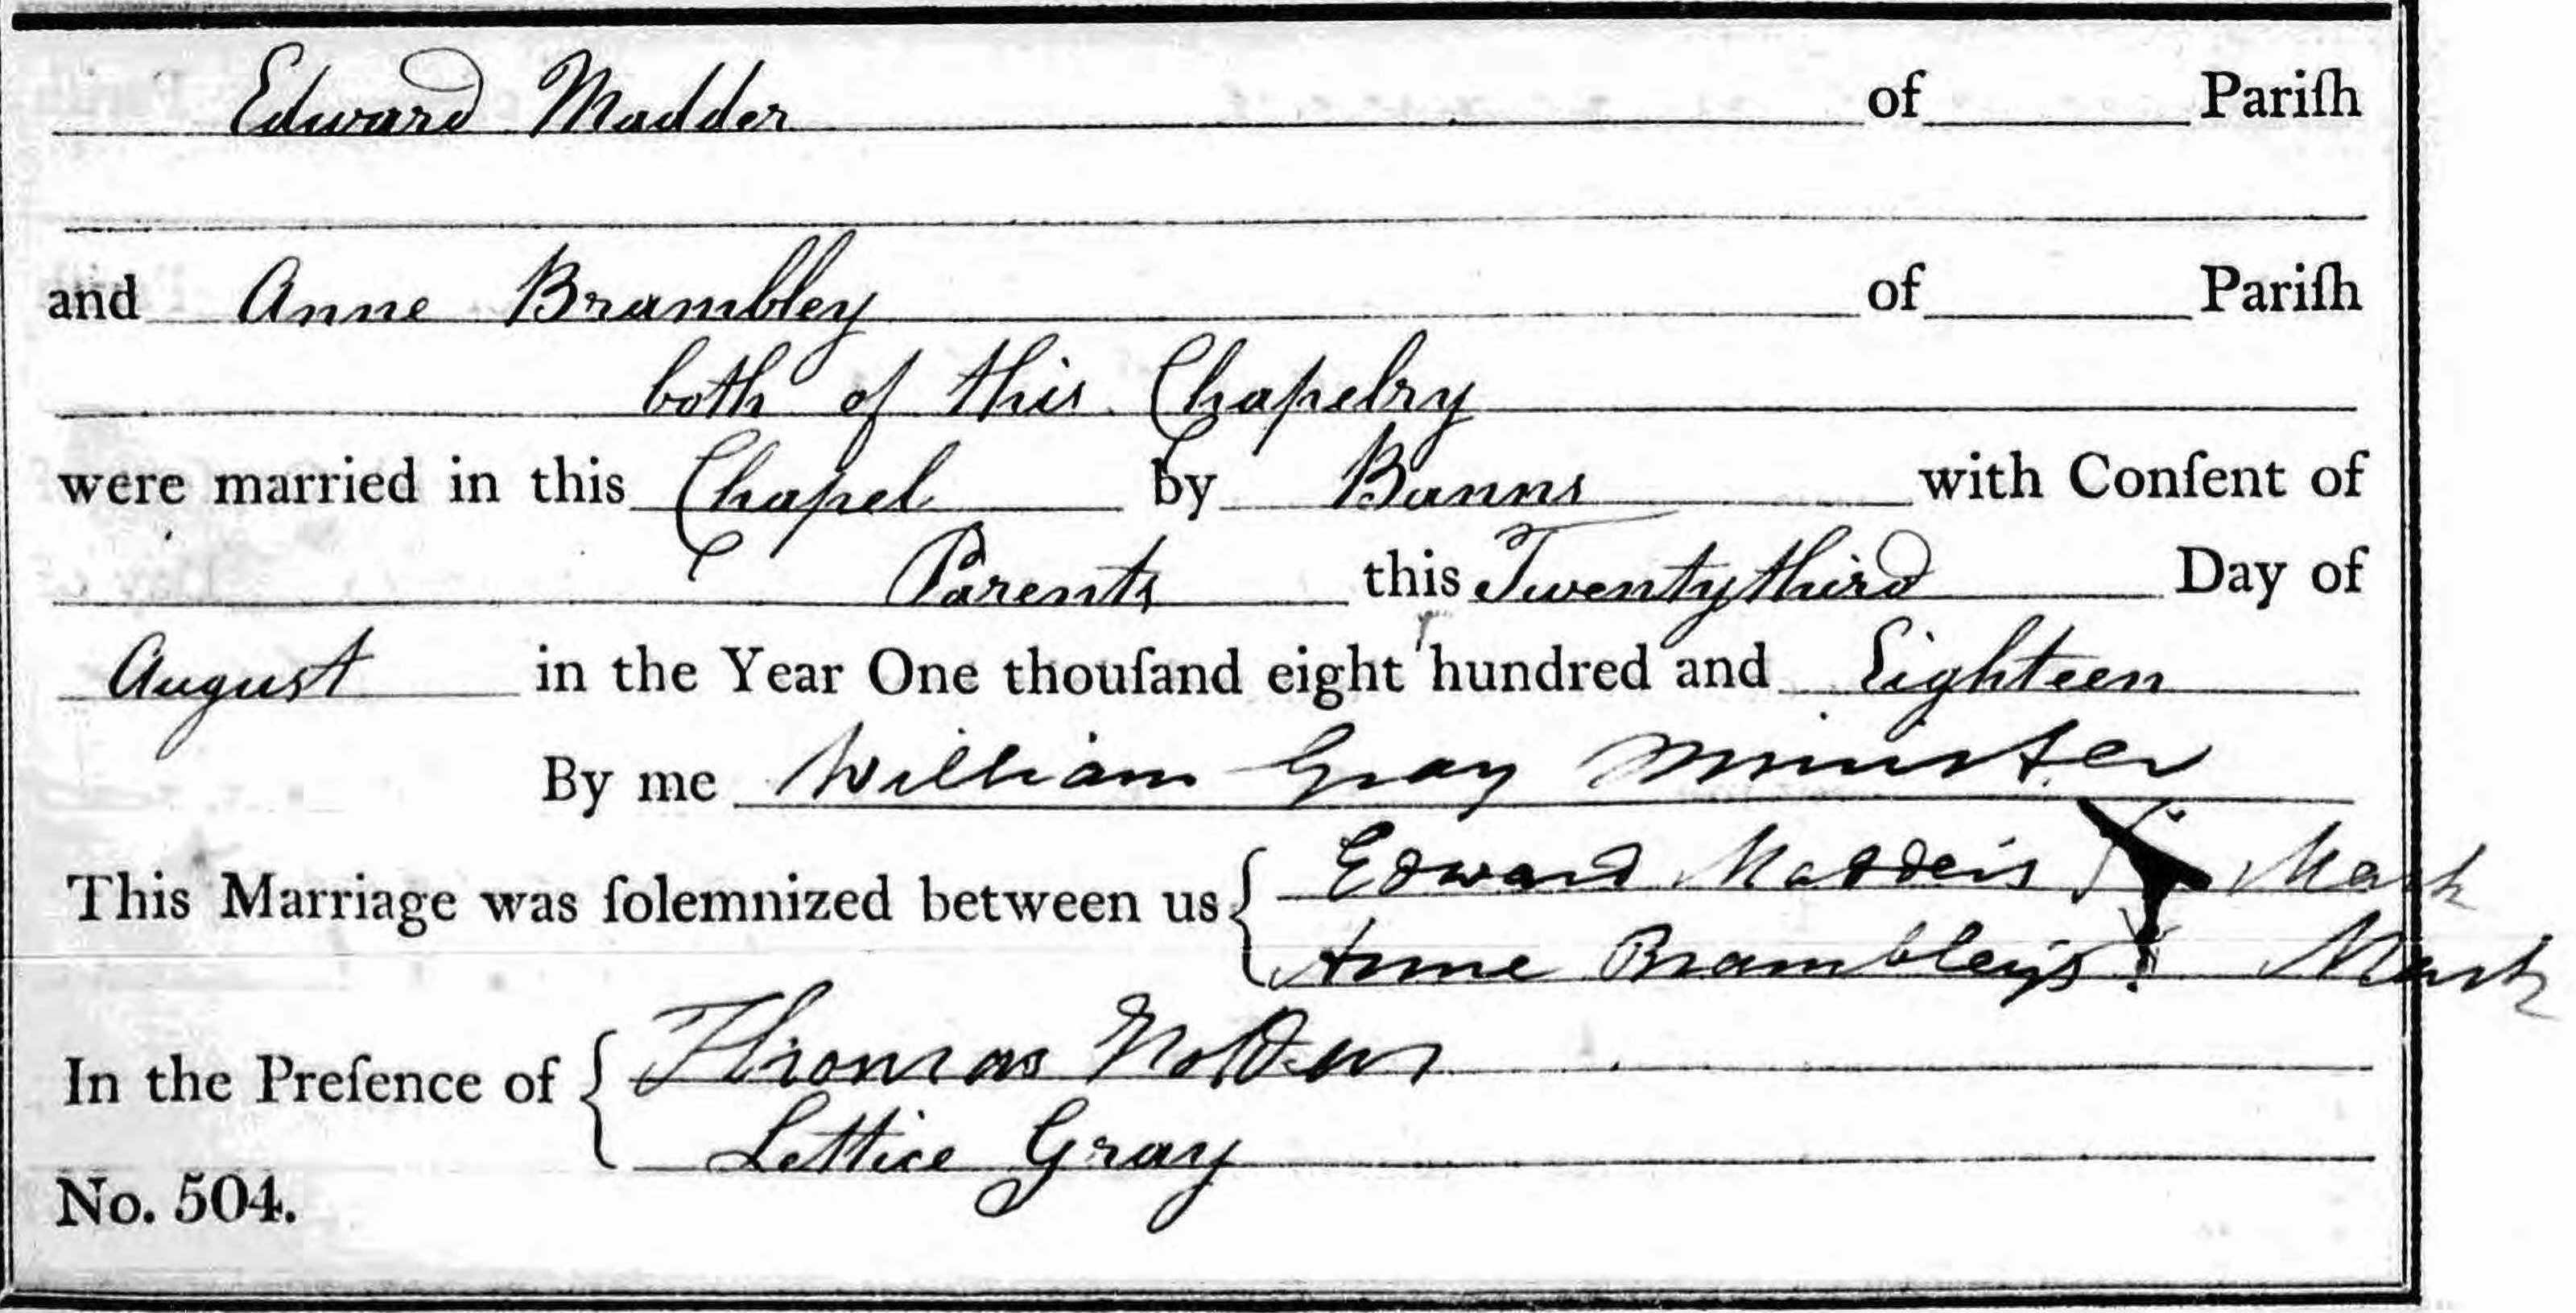 Edward Madder of Pariſh
and Anne Brambley of Pariſh
both of this Chapelry
were married in this Chapel by Banns with Conſent of
Parents this Twentythird Day of
August in the Year One thouſand eight hundred and Eighteen
By me William Gray Minister
This Marriage was ſolemnized between us { Edward Madder's Mark
Anne Brambley's Mark
In the Preſence of { Thomas
Lettice Gray
No. 504.